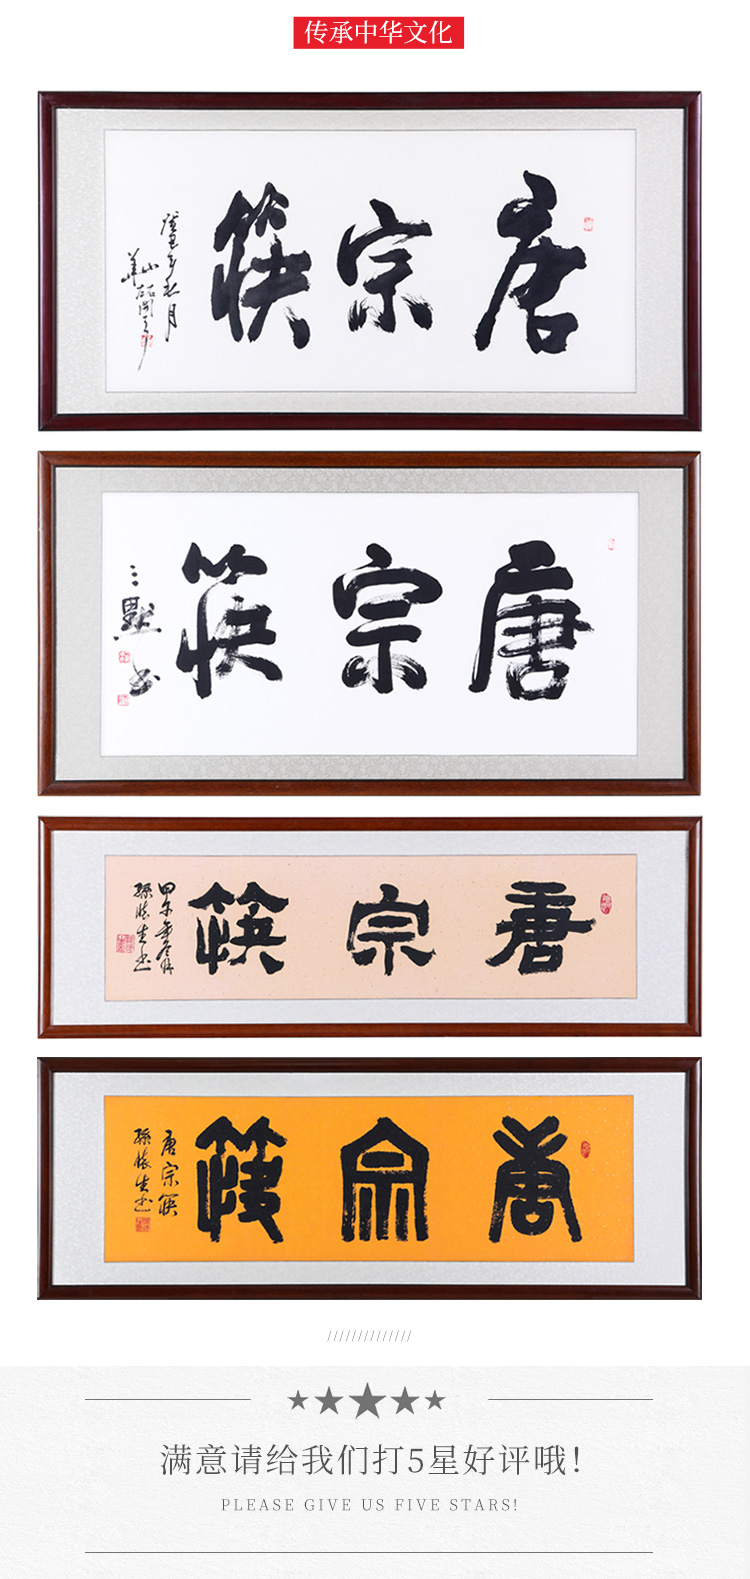 传承中华文化
唐宗筷
唐宗筷
三默书
唐宗筷
孙怀生书
唐宗筷
唐宗筷
孙怀生书
满意请给我们打5星好评哦!
PLEASE GIVE US FIVE STARS!